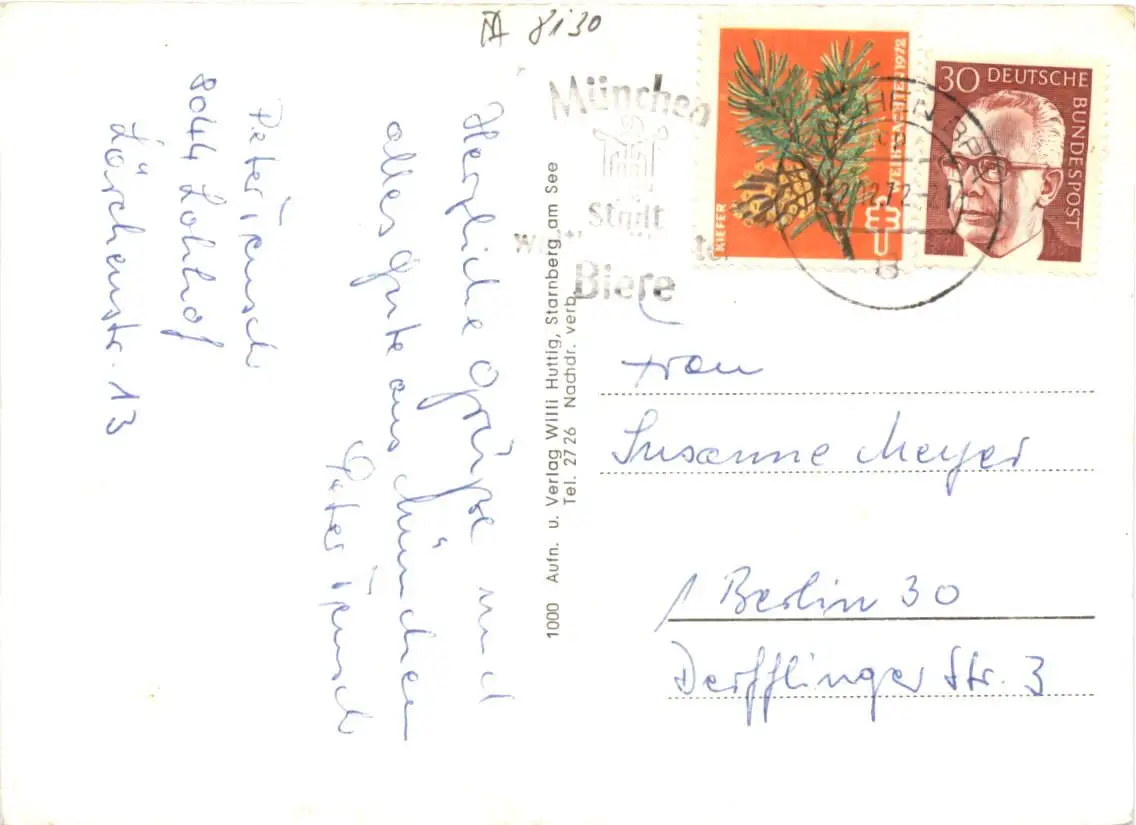 8130
München
Stadt
Biere
KIEFER
1972
30 DEUTSCHE
BUNDESPOST
Herzliche Grüße und
alles gute aus München
Peter
Peter
8044 Lohhof
Lärchenstr. 13
1000 Aufn. u. Verlag Willi Huttig, Starnberg am See
Tel. 2726 Nachdr. verb.
Frau
Susanne Meyer
1 Berlin 30
Derfflinger Str. 3